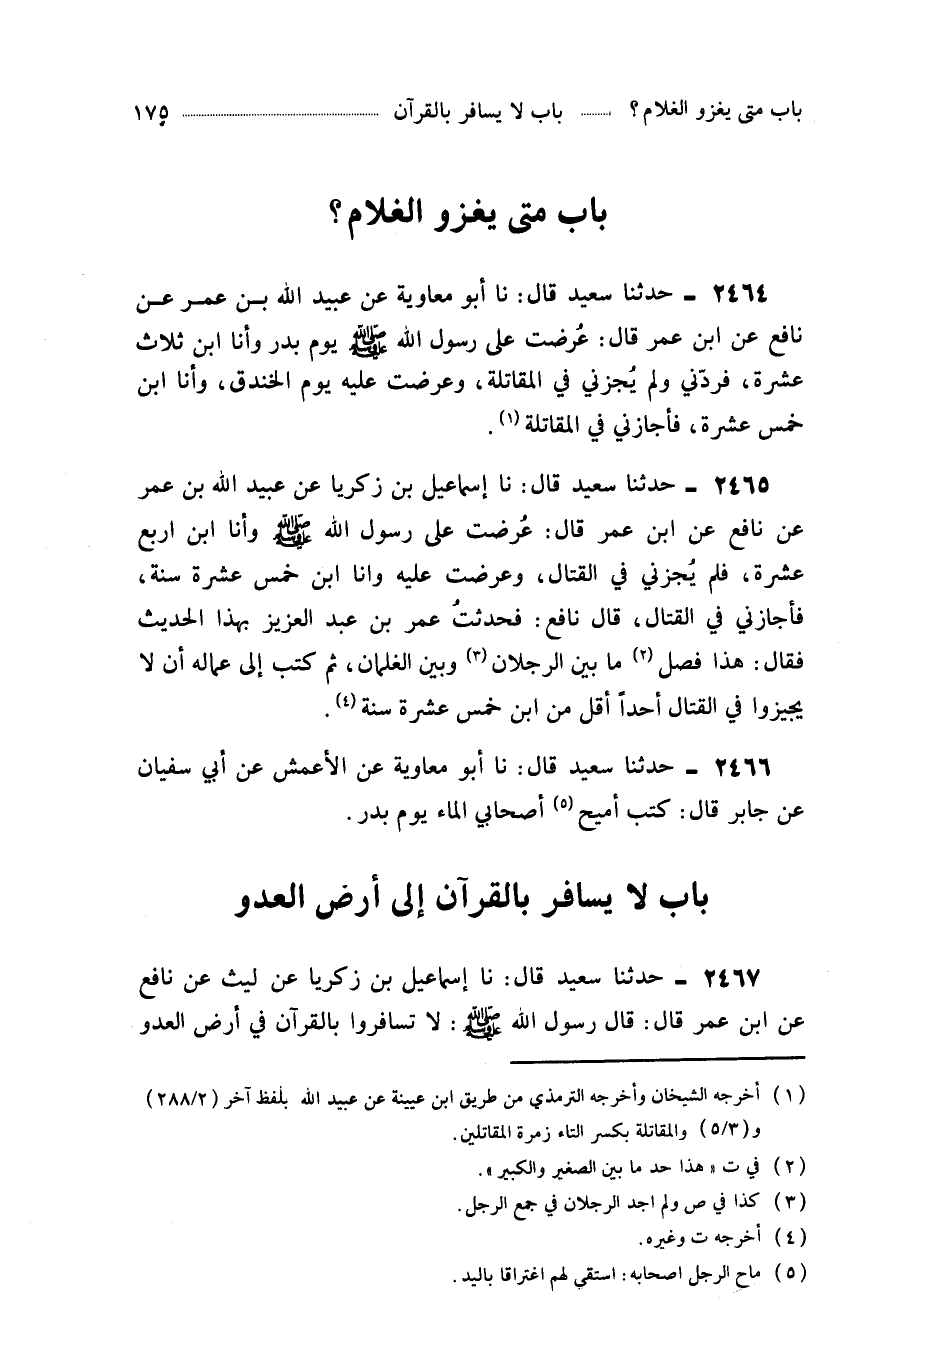 باب متى يغزو الغلام؟ ........ باب لا يسافر بالقرآن ........ ١٧٥
باب متى يغزو الغلام؟
٢٤٦٤ ـ حدثنا سعيد قال: نا أبو معاوية عن عبيد الله بـن عمـر عـن
نافع عن ابن عمر قال: عُرضت على رسول الله ﷺ يوم بدر وأنا ابن ثلاث
عشرة، فردّني ولم يُجزني في المقاتلة، وعرضت عليه يوم الخندق، وأنا ابن
خمس عشرة، فأجازني في المقاتلة (١).
٢٤٦٥ ـ حدثنا سعيد قال: نا إسماعيل بن زكريا عن عبيد الله بن عمر
عن نافع عن ابن عمر قال: عُرضت على رسول الله ﷺ وأنا ابن اربع
عشرة، فلم يُجزني في القتال، وعرضت عليه وانا ابن خمس عشرة سنة،
فأجازني في القتال، قال نافع: فحدثتُ عمر بن عبد العزيز بهذا الحديث
فقال: هذا فصل (٢) ما بين الرجلان (٣) وبين الغلمان، ثم كتب إلى عماله أن لا
يجيزوا في القتال أحداً أقل من ابن خمس عشرة سنة (٤).
٢٤٦٦ ـ حدثنا سعيد قال: نا أبو معاوية عن الأعمش عن أبي سفيان
عن جابر قال: كتب أميح (٥) أصحابي الماء يوم بدر.
باب لا يسافر بالقرآن إلى أرض العدو
٢٤٦٧ ـ حدثنا سعيد قال: نا إسماعيل بن زكريا عن ليث عن نافع
عن ابن عمر قال: قال رسول الله ﷺ: لا تسافروا بالقرآن في أرض العدو
(١) أخرجه الشيخان وأخرجه الترمذي من طريق ابن عيينة عن عبيد الله بلفظ آخر (٢/٢٨٨)
و(٣/٥) والمقاتلة بكسر التاء زمرة المقاتلين.
(٢) في ت « هذا حد ما بين الصغير والكبير ».
(٣) كذا في ص ولم اجد الرجلان في جمع الرجل.
(٤) أخرجه ت وغيره.
(٥) ماح الرجل اصحابه: استقي لهم اغتراقا باليد.